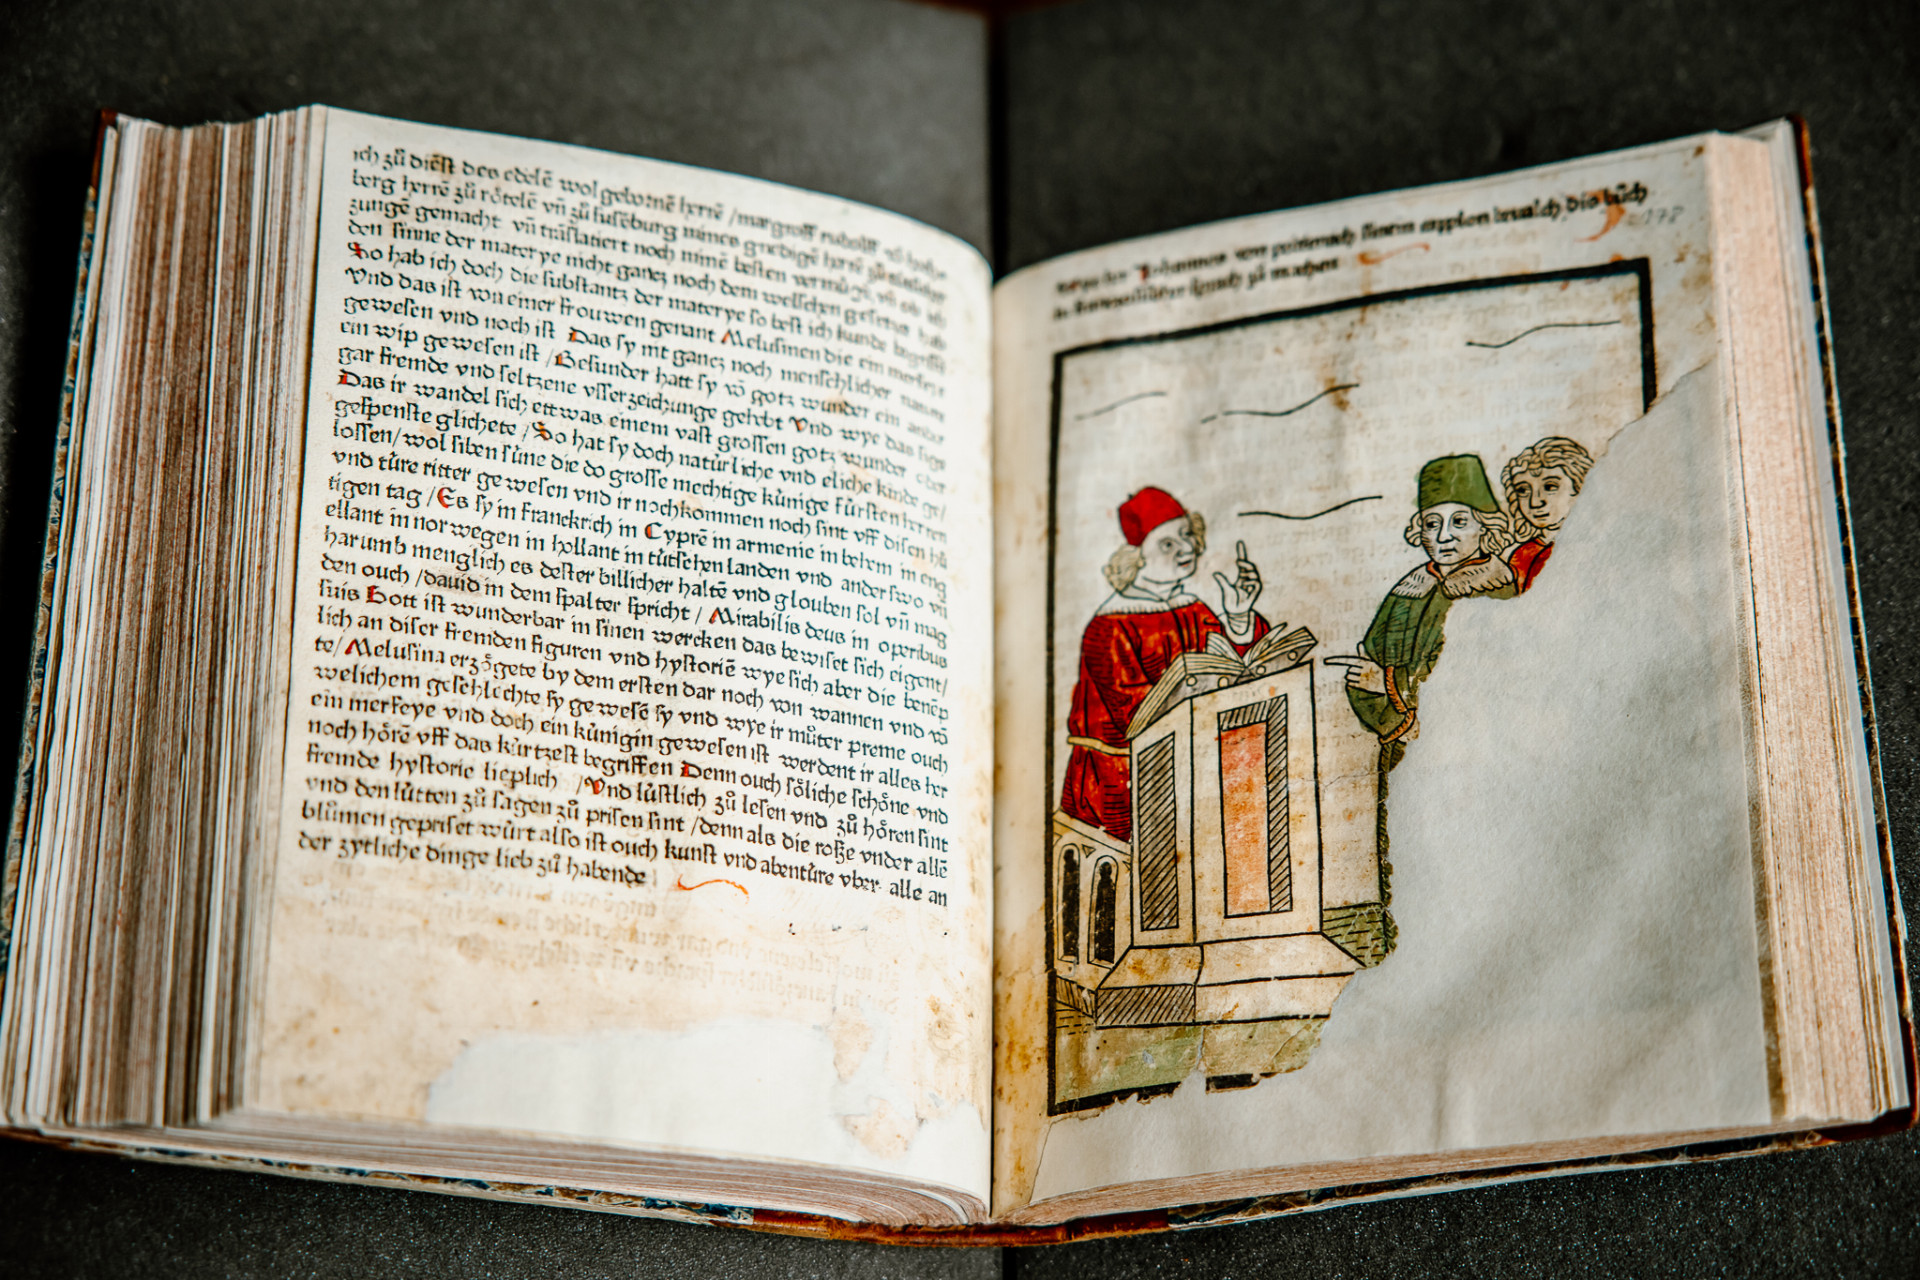 ich zů dienſt des edelē wol gebornē herrē /margroff rudolff vō hoch
berg herrē zů rötelē vn̄ zů ſuſēburg mines gnedigē herrē zů
zungē gemacht vn̄ trāſlatiert noch minē beſten vermügē vn̄ ob ich
den ſinne der materye nicht gancz noch dem welſchen geſetzt hab
So hab ich doch die ſubſtantz der materye ſo beſt ich kunde begriffē
Vnd das iſt von einer frouwen genant Meluſinen die ein merfeye
geweſen vnd noch iſt Das ſy nit gancz noch menſchlicher nature
ein wip geweſen iſt /Beſunder hatt ſy vō gotz wunder ein ander
gar fremde vnd ſeltzene vſſerzeichunge gehebt Vnd wye das ſige
Das ir wandel ſich ettwas einem vaſt groſſen gotz wunder oder
geſpenſte glichete /So hat ſy doch natürliche vnd eliche kinde ge/
loſſen/wol ſiben ſüne die do groſſe mechtige künige fürſten herren
vnd türe ritter geweſen vnd ir nochkommen noch ſint vff diſen hü
tigen tag /Es ſy in Franckrich in Cyprē in armenie in behem in eng
ellant in norwegen in hollant in tütſchen landen vnd anderſwo vn̄
harumb menglich es deſter billicher haltē vnd glouben ſol vn̄ mag
den ouch /dauid in dem ſpalter ſpricht / Mirabilis deus in operibus
ſuis Gott iſt wunderbar in ſinen wercken das bewiſet ſich eigent/
lich an diſer fremden figuren vnd hyſtoriē wye ſich aber die benēp
te/Meluſina erzögete by dem erſten dar noch von wannen vnd vō
welichem geſchlechte ſy geweſē ſy vnd wye ir můter preme ouch
ein merfeye vnd doch ein künigin geweſen iſt werdent ir alles her
noch hörē vff das kürtzeſt begriffen Denn ouch ſöliche ſchöne vnd
fremde hyſtorie lieplich /Vnd lüſtlich zů leſen vnd zů hören ſint
vnd den lütten zů ſagen zů priſen ſint /denn als die roſſe vnder allē
blůmen gepriſet würt alſo iſt ouch kunſt vnd abentüre vber alle an
der zytliche dinge lieb zů habende
Johannes von ſinem dis bůch
zů machen